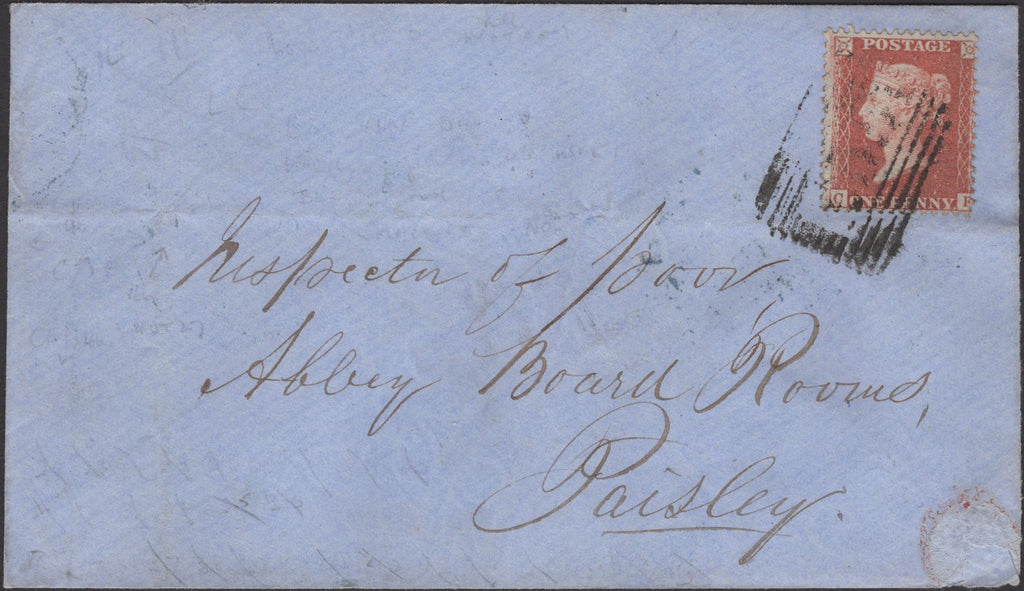 POSTAGE
C ONE PENNY. F
Inspector of poor
Abbey Board Rooms,
Paisley.